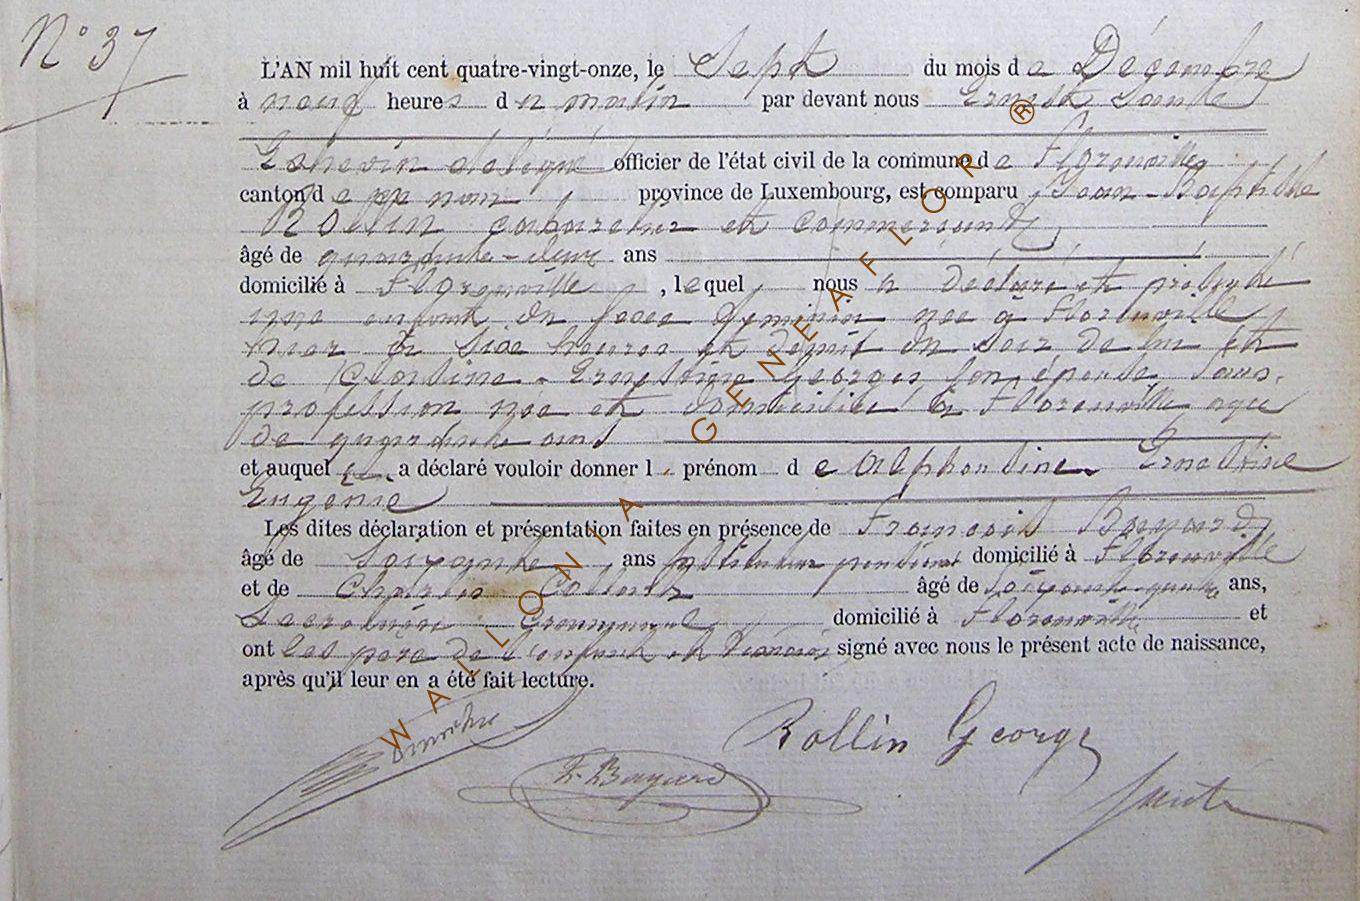 N° 37
L'AN mil huit cent quatre-vingt-onze, le Sept du mois de Décembre
à neuf heures du matin par devant nous Ernest Santé
Echevin délégué officier de l'état civil de la commune de Florenville
canton de ce nom province de Luxembourg, est comparu Jean-Baptiste
Rollin cabaretier et commerçant
âgé de quarante-deux ans
domicilié à Florenville, lequel nous a déclaré et présenté
une enfant du sexe féminin née à Florenville
hier à six heures et demie du soir de lui et
de Ernestine Georges son épouse sans
profession née et domiciliée à Florenville agée
de quarante ans
et auquel il a déclaré vouloir donner l prénom de Alphonsine Ernestine
Eugénie
Les dites déclaration et présentation faites en présence de François Bayard
âgé de soixante ans instituteur pensionné domicilié à Florenville
et de Charles âgé de soixante-quatre ans,
Secrétaire Communal domicilié à Florenville et
ont les père de l'enfant et témoins signé avec nous le présent acte de naissance,
après qu'il leur en a été fait lecture.
Rollin George
F. Bayard
Santé
WALLONIA GENEAFLOR ®